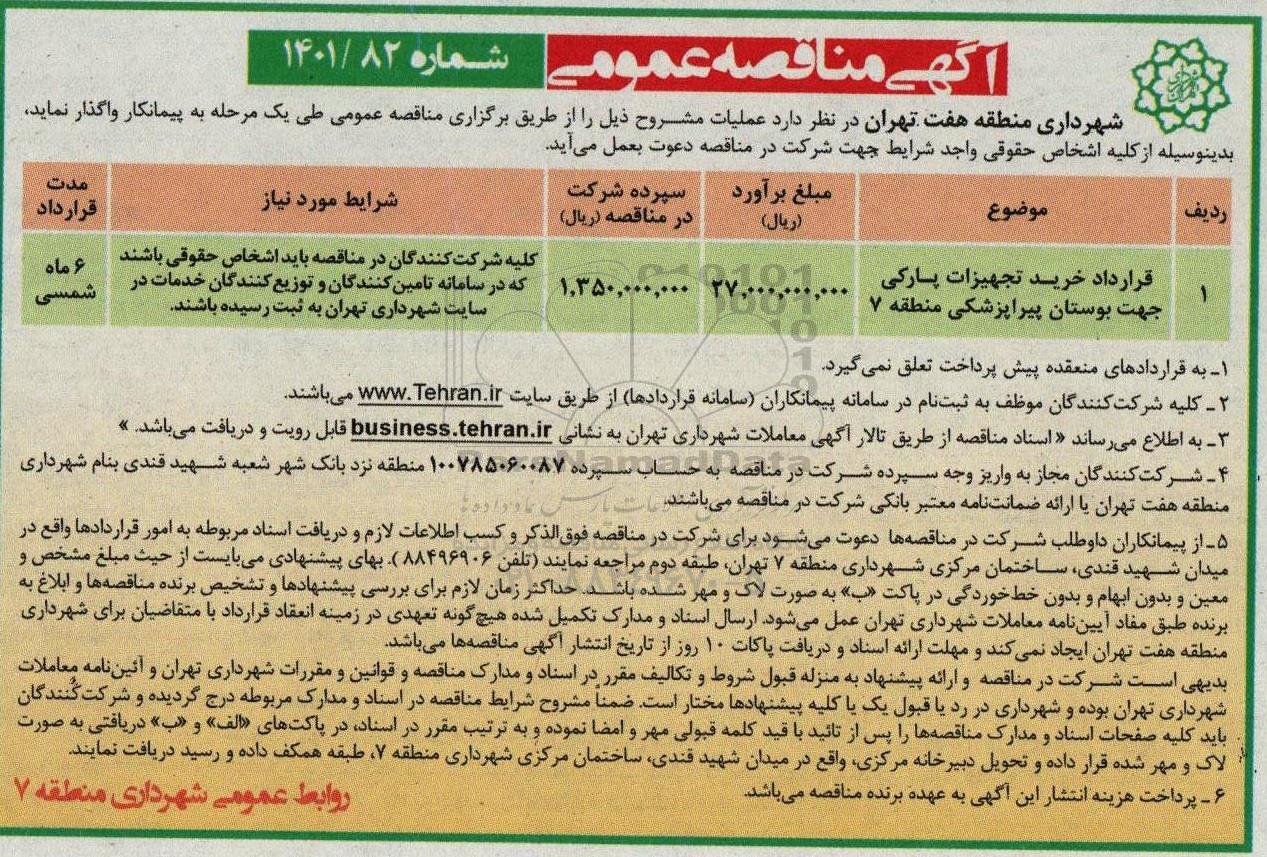 آگهی مناقصه عمومی
شماره ۸۲ /۱۴۰۱
شهرداری منطقه هفت تهران در نظر دارد عملیات مشروح ذیل را از طریق برگزاری مناقصه عمومی طی یک مرحله به پیمانکار واگذار نماید،
بدینوسیله از کلیه اشخاص حقوقی واجد شرایط جهت شرکت در مناقصه دعوت بعمل می‌آید.
ردیف
موضوع
مبلغ برآورد
(ریال)
سپرده شرکت
در مناقصه (ریال)
شرایط مورد نیاز
مدت
قرارداد
۱
قرارداد خرید تجهیزات پارکی
جهت بوستان پیراپزشکی منطقه ۷
۲۷,۰۰۰,۰۰۰,۰۰۰
۱,۳۵۰,۰۰۰,۰۰۰
کلیه شرکت‌کنندگان در مناقصه باید اشخاص حقوقی باشند
که در سامانه تامین‌کنندگان و توزیع‌کنندگان خدمات در
سایت شهرداری تهران به ثبت رسیده باشند.
۶ ماه
شمسی
۱ـ به قراردادهای منعقده پیش پرداخت تعلق نمی‌گیرد.
۲ ـ کلیه شرکت‌کنندگان موظف به ثبت‌نام در سامانه پیمانکاران (سامانه قراردادها) از طریق سایت www.Tehran.ir می‌باشند.
۳ـ به اطلاع می‌رساند « اسناد مناقصه از طریق تالار آگهی معاملات شهرداری تهران به نشانی business.tehran.ir قابل رویت و دریافت می‌باشد. »
۴ ـ شرکت‌کنندگان مجاز به واریز وجه سپرده شرکت در مناقصه به حساب سپرده ۱۰۰۷۸۵۰۶۰۰۸۷ منطقه نزد بانک شهر شعبه شهید قندی بنام شهرداری
منطقه هفت تهران یا ارائه ضمانت‌نامه معتبر بانکی شرکت در مناقصه می‌باشند.
۵ـ از پیمانکاران داوطلب شرکت در مناقصه‌ها دعوت می‌شود برای شرکت در مناقصه فوق‌الذکر و کسب اطلاعات لازم و دریافت اسناد مربوطه به امور قراردادها واقع در
میدان شهید قندی، ساختمان مرکزی شهرداری منطقه ۷ تهران، طبقه دوم مراجعه نمایند (تلفن ۸۸۴۹۶۹۰۶ ). بهای پیشنهادی می‌بایست از حیث مبلغ مشخص و
معین و بدون ابهام و بدون خط‌خوردگی در پاکت «ب» به صورت لاک و مهر شده باشد. حداکثر زمان لازم برای بررسی پیشنهادها و تشخیص برنده مناقصه‌ها و ابلاغ به
برنده طبق مفاد آیین‌نامه معاملات شهرداری تهران عمل می‌شود. ارسال اسناد و مدارک تکمیل شده هیچ‌گونه تعهدی در زمینه انعقاد قرارداد با متقاضیان برای شهرداری
منطقه هفت تهران ایجاد نمی‌کند و مهلت ارائه اسناد و دریافت پاکات ۱۰ روز از تاریخ انتشار آگهی مناقصه‌ها می‌باشد.
بدیهی است شرکت در مناقصه و ارائه پیشنهاد به منزله قبول شروط و تکالیف مقرر در اسناد و مدارک مناقصه و قوانین و مقررات شهرداری تهران و آئین‌نامه معاملات
شهرداری تهران بوده و شهرداری در رد یا قبول یک یا کلیه پیشنهادها مختار است. ضمناً مشروح شرایط مناقصه در اسناد و مدارک مربوطه درج گردیده و شرکت‌کنندگان
باید کلیه صفحات اسناد و مدارک مناقصه‌ها را پس از تائید با قید کلمه قبولی مهر و امضا نموده و به ترتیب مقرر در اسناد، در پاکت‌های «الف» و «ب» دریافتی به صورت
لاک و مهر شده قرار داده و تحویل دبیرخانه مرکزی، واقع در میدان شهید قندی، ساختمان مرکزی شهرداری منطقه ۷، طبقه همکف داده و رسید دریافت نمایند.
۶ ـ پرداخت هزینه انتشار این آگهی به عهده برنده مناقصه می‌باشد.
روابط عمومی شهرداری منطقه ۷